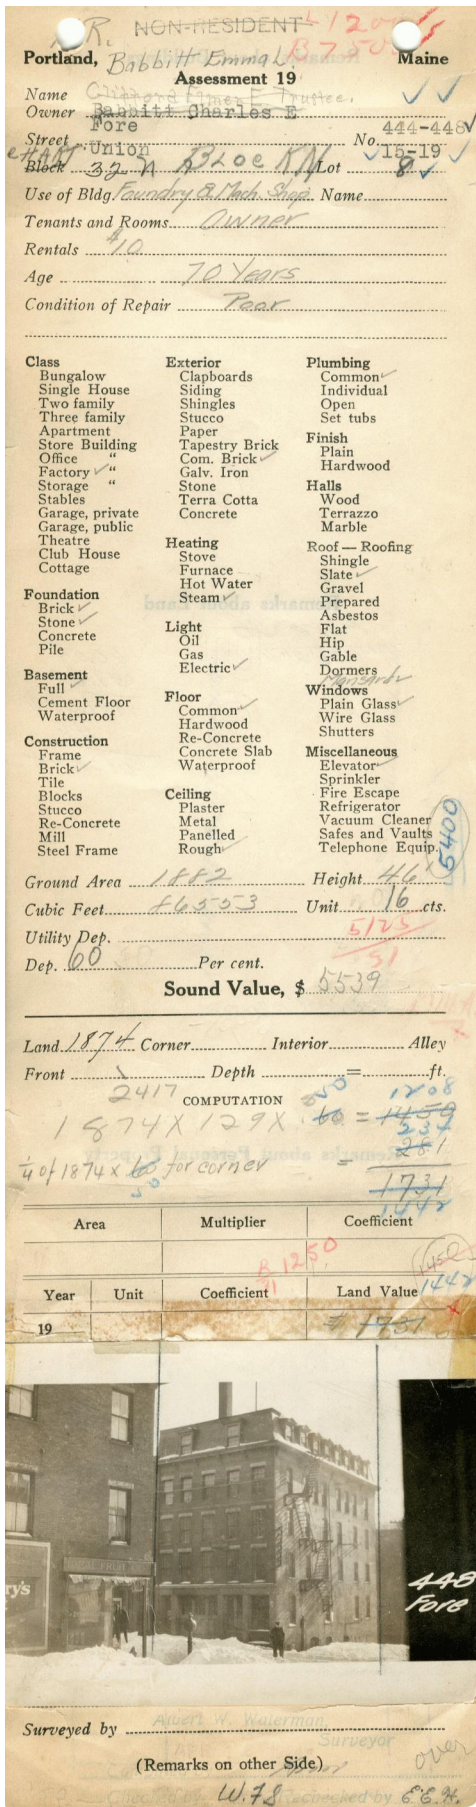 N.R. NON-RESIDENT L 1200
B 7500
Portland, Babbitt Emma L. Maine
Assessment 19
Name Clifford Elmer E Trustee.
Owner Babbitt Charles E
Fore 444-448
Street No.
Union 15-19
CHART
Block 32 N BLOCK N Lot 8
Use of Bldg Foundry & Mach. Shop Name
Tenants and Rooms Owner
Rentals $10
Age 70 Years
Condition of Repair Poor
Class
Bungalow
Single House
Two family
Three family
Apartment
Store Building
Office "
Factory ✓ "
Storage "
Stables
Garage, private
Garage, public
Theatre
Club House
Cottage
Foundation
Brick ✓
Stone ✓
Concrete
Pile
Basement
Full ✓
Cement Floor
Waterproof
Construction
Frame
Brick ✓
Tile
Blocks
Stucco
Re-Concrete
Mill
Steel Frame
Exterior
Clapboards
Siding
Shingles
Stucco
Paper
Tapestry Brick
Com. Brick ✓
Galv. Iron
Stone
Terra Cotta
Concrete
Heating
Stove
Furnace
Hot Water
Steam ✓
Light
Oil
Gas
Electric ✓
Floor
Common ✓
Hardwood
Re-Concrete
Concrete Slab
Waterproof
Ceiling
Plaster
Metal
Panelled
Rough ✓
Plumbing
Common ✓
Individual
Open
Set tubs
Finish
Plain
Hardwood
Halls
Wood
Terrazzo
Marble
Roof — Roofing
Shingle
Slate ✓
Gravel
Prepared
Asbestos
Flat
Hip
Gable
Dormers
Mansard ✓
Windows
Plain Glass ✓
Wire Glass
Shutters
Miscellaneous
Elevator ✓
Sprinkler
Fire Escape
Refrigerator
Vacuum Cleaner
Safes and Vaults
Telephone Equip.
5400
Ground Area 1882 Height 46'
Cubic Feet 86553 Unit 16 cts.
Utility Dep. 5125
51
Dep. 60 Per cent.
Sound Value, $ 5539
Land 1874 Corner Interior Alley
Front Depth = ft.
2417 COMPUTATION 50 1208
1874 X 129 X 60 = 1450
234
1/4 of 1874 x 60 for corner = 281
50 1731
1442
Area Multiplier Coefficient
B 1250
51
1450
Year Unit Coefficient Land Value 1442
19 $ 1731
448
Fore
Surveyed by
Albert W. Waterman
Surveyor
(Remarks on other Side) over
W.7S Rechecked by E.E.H.